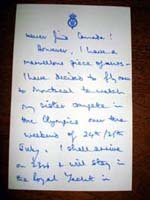 never find Canada!
However, I have a
marvellous piece of news -
I have decided to fly over
to Montreal to watch
my sister compete in
the Olympics over the
weekend of 24th/25th
July. I shall arrive
on 23rd & will stay in
the Royal Yacht in